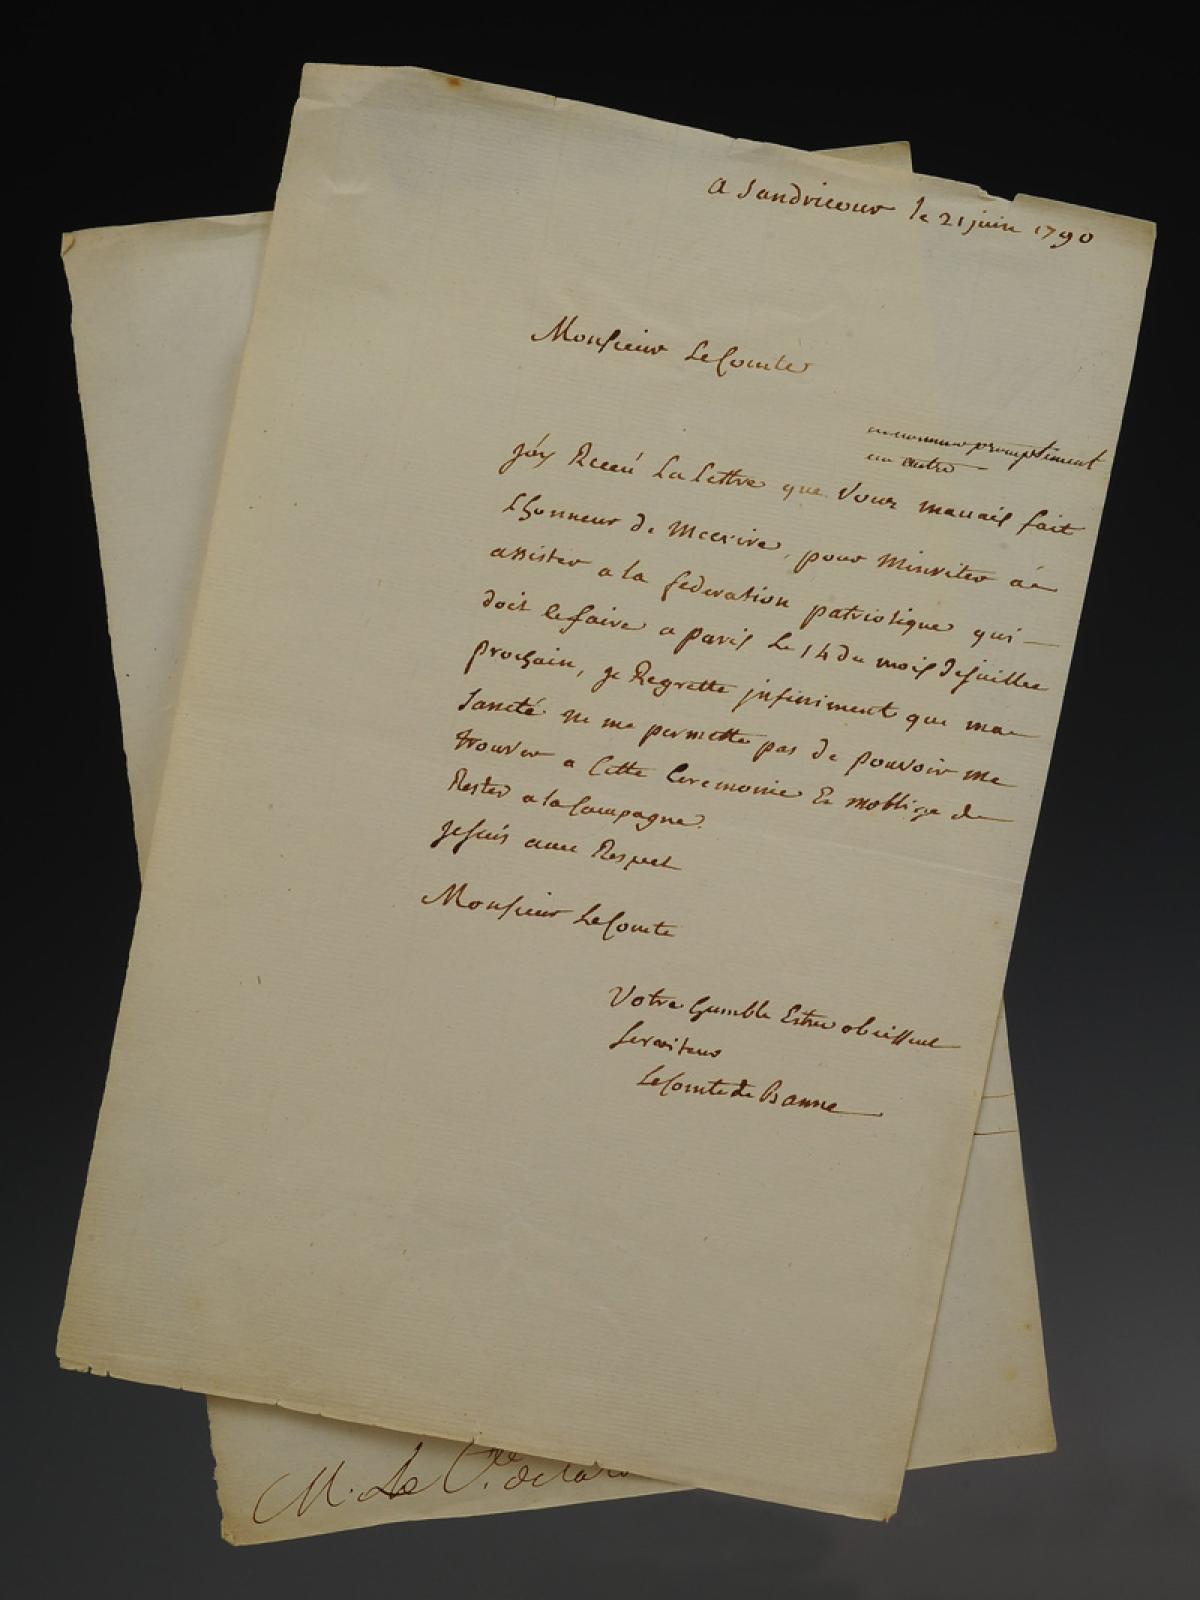 a Sandricour le 21 juin 1790
Monsieur Le Comte
promptement
un autre
j'ay Receu La Lettre que Vous mavais fait
Lhonneur de Mecrire, pour Minviter a
assister a la federation patriotique qui
doit se faire a paris Le 14 du mois de juillet
prochain, je Regrette jnfiniment que ma
Santé ne me permette pas de pouvoir me
trouver a Cette Ceremonie Et moblige de
Rester a la Campagne.
je suis avec Respect
Monsieur Le Comte
Votre humble Et tres obeissent
serviteur
Le Comte de Banne
M. Le Cte de la